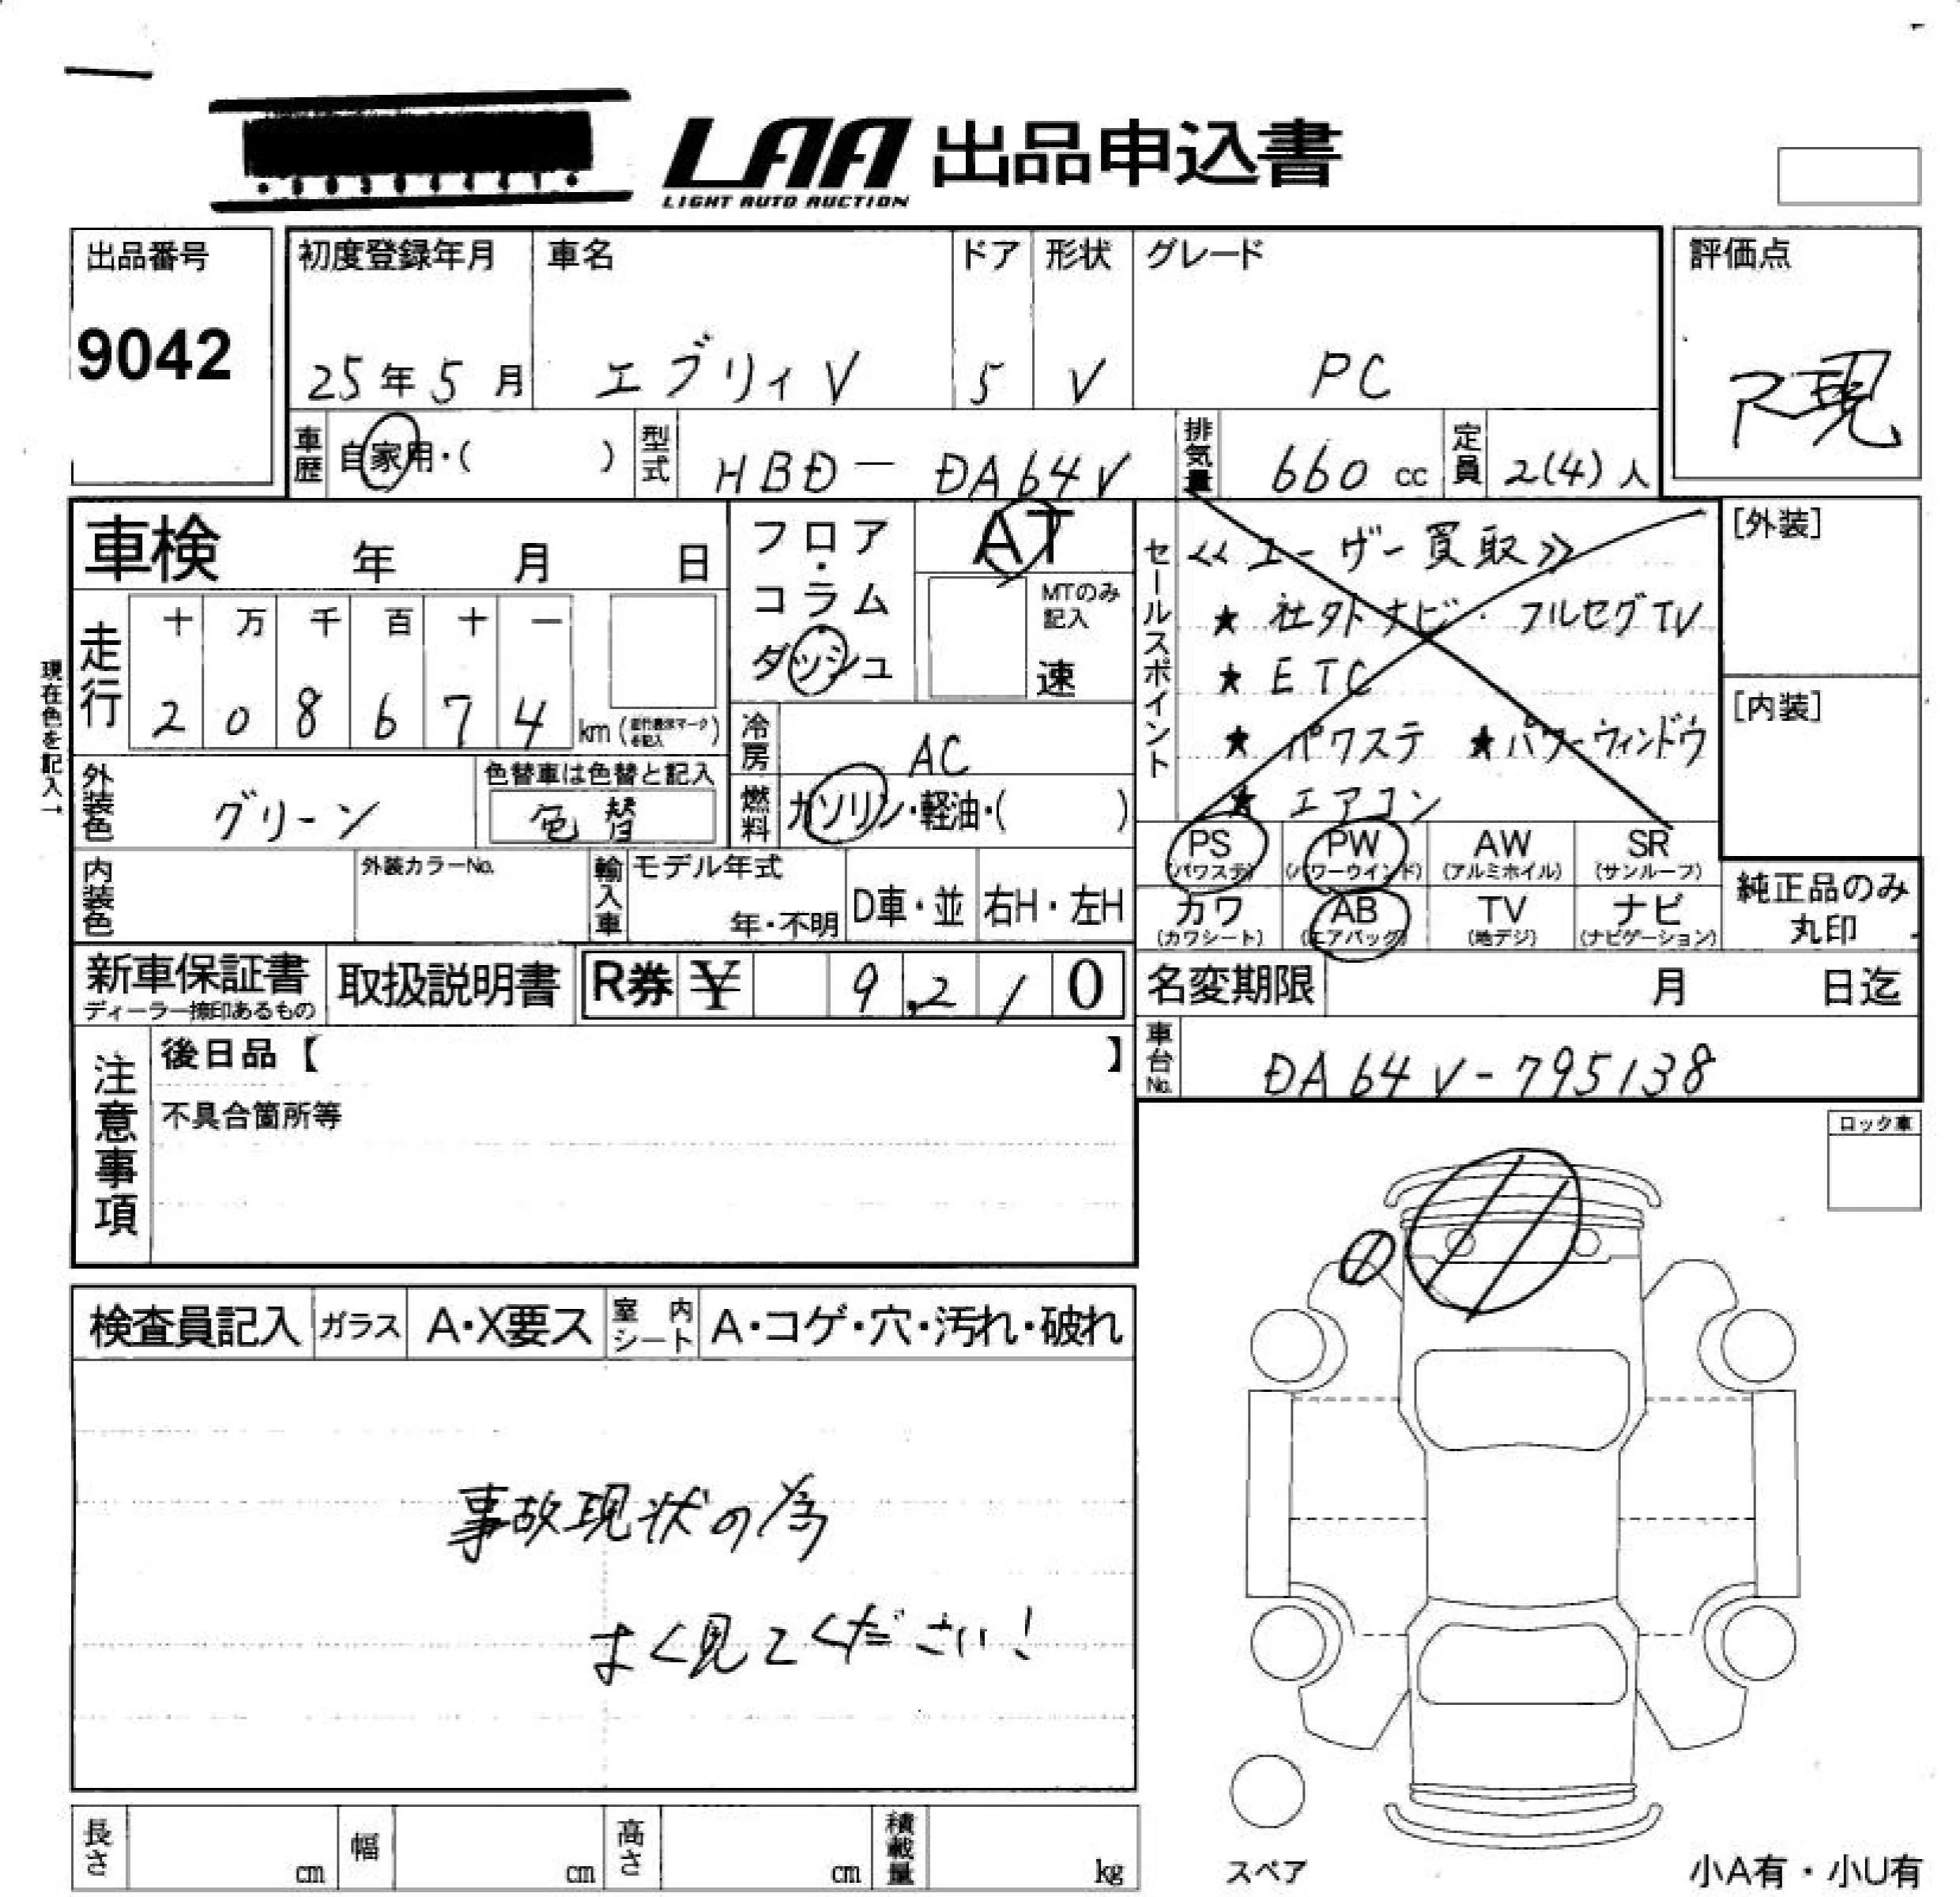 LAA 出品申込書
LIGHT AUTO AUCTION
出品番号
9042
初度登録年月
25年5月
車名
エブリィV
ドア
5
形状
V
グレード
PC
評価点
R現
車歴
自家用・( )
型式
HBD-DA64V
排気量
660 cc
定員
2(4)人
車検 年 月 日
走行
十 万 千 百 十 一
2 0 8 6 7 4 km
現在色を記入→
フロア・コラム
ダッシュ
AT
MTのみ記入
速
冷房
AC
燃料
ガソリン・軽油・( )
外装色
グリーン
色替車は色替と記入
色替
内装色
外装カラーNo.
輸入車
モデル年式
年・不明
D車・並
右H・左H
セールスポイント
≪ユーザー買取≫
★ 社外ナビ・フルセグTV
★ ETC
★ パワステ ★パワーウィンドウ
★ エアコン
PS (パワステ) PW (パワーウインド) AW (アルミホイル) SR (サンルーフ)
カワ (カワシート) AB (エアバッグ) TV (地デジ) ナビ (ナビゲーション)
[外装]
[内装]
純正品のみ
丸印
新車保証書
ディーラー捺印あるもの
取扱説明書
R券 ¥ 9,210
名変期限 月 日迄
車台No.
DA64V-795138
注意事項
後日品【 】
不具合箇所等
ロック車
検査員記入 ガラス A・X要ス 室内シート A・コゲ・穴・汚れ・破れ
事故現状の為
よく見てください!
長さ cm 幅 cm 高さ cm 積載量 kg
スペア
小A有・小U有